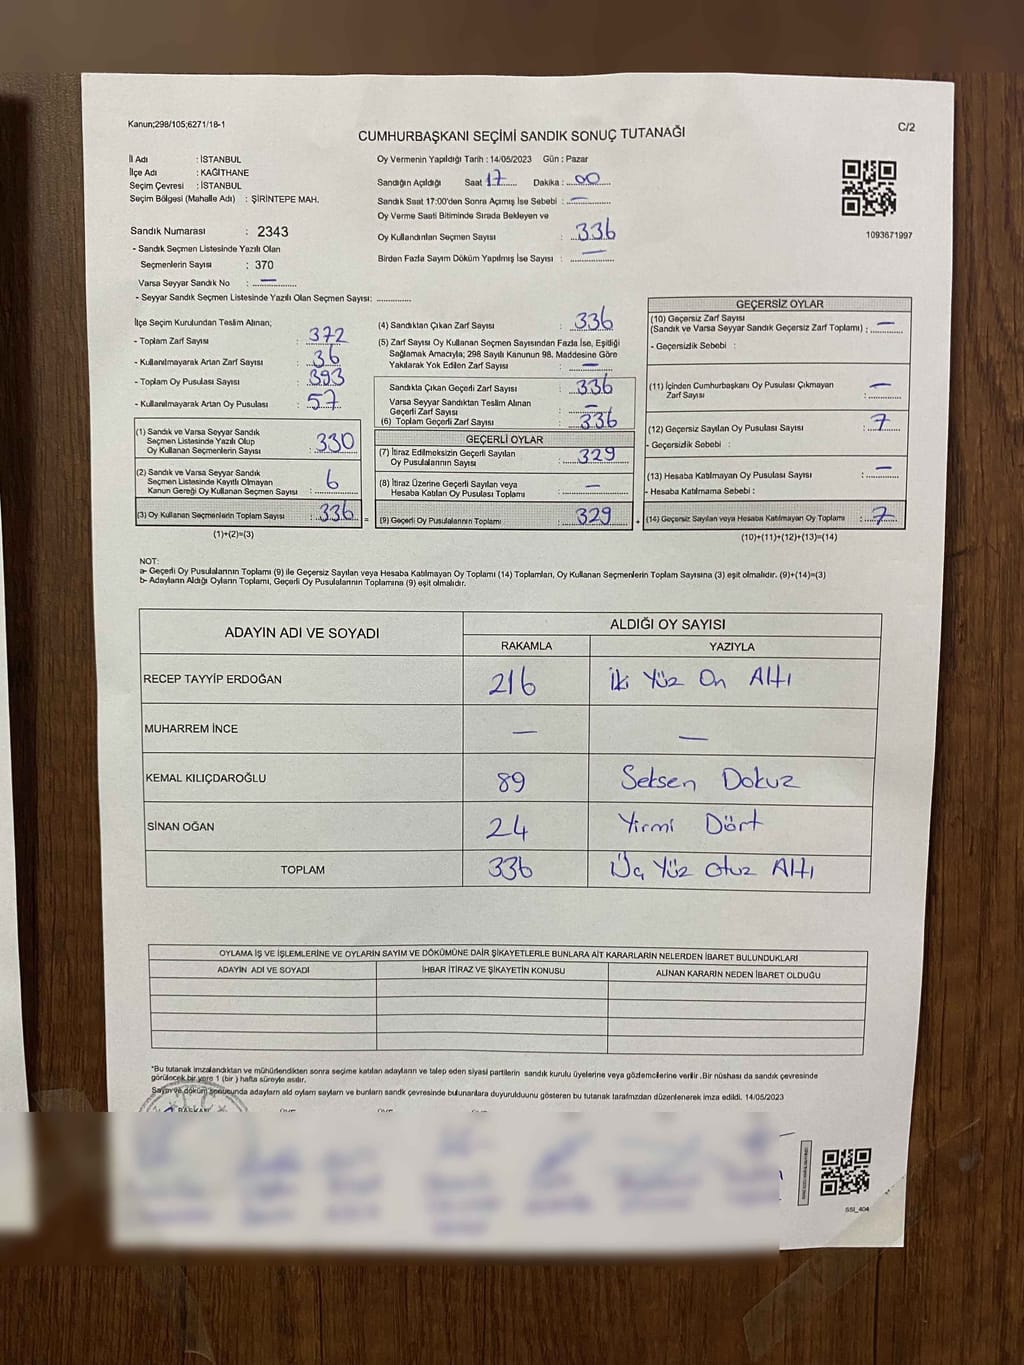 Kanun;298/105;6271/18-1
C/2
CUMHURBAŞKANI SEÇİMİ SANDIK SONUÇ TUTANAĞI
İl Adı : İSTANBUL
İlçe Adı : KAĞITHANE
Seçim Çevresi : İSTANBUL
Seçim Bölgesi (Mahalle Adı) : ŞİRİNTEPE MAH.
Sandık Numarası : 2343
- Sandık Seçmen Listesinde Yazılı Olan
Seçmenlerin Sayısı : 370
Varsa Seyyar Sandık No : —
- Seyyar Sandık Seçmen Listesinde Yazılı Olan Seçmen Sayısı: ............
Oy Vermenin Yapıldığı Tarih : 14/05/2023 Gün : Pazar
Sandığın Açıldığı Saat 17 Dakika : 00
Sandık Saat 17:00'den Sonra Açımış İse Sebebi : —
Oy Verme Saati Bitiminde Sırada Bekleyen ve
Oy Kullandırılan Seçmen Sayısı : 336
Birden Fazla Sayım Döküm Yapılmış İse Sayısı : —
1093671997
İlçe Seçim Kurulundan Teslim Alınan;
- Toplam Zarf Sayısı : 372
- Kullanılmayarak Artan Zarf Sayısı : 36
- Toplam Oy Pusulası Sayısı : 393
- Kullanılmayarak Artan Oy Pusulası : 57
(1) Sandık ve Varsa Seyyar Sandık
Seçmen Listesinde Yazılı Olup
Oy Kullanan Seçmenlerin Sayısı : 330
(2) Sandık ve Varsa Seyyar Sandık
Seçmen Listesinde Kayıtlı Olmayan
Kanun Gereği Oy Kullanan Seçmen Sayısı : 6
(3) Oy Kullanan Seçmenlerin Toplam Sayısı : 336 =
(1)+(2)=(3)
(4) Sandıktan Çıkan Zarf Sayısı : 336
(5) Zarf Sayısı Oy Kullanan Seçmen Sayısından Fazla İse, Eşitliği
Sağlamak Amacıyla; 298 Sayılı Kanunun 98. Maddesine Göre
Yakılarak Yok Edilen Zarf Sayısı : —
Sandıkta Çıkan Geçerli Zarf Sayısı : 336
Varsa Seyyar Sandıktan Teslim Alınan
Geçerli Zarf Sayısı : —
(6) Toplam Geçerli Zarf Sayısı : 336
GEÇERLİ OYLAR
(7) İtiraz Edilmeksizin Geçerli Sayılan
Oy Pusulalarının Sayısı : 329
(8) İtiraz Üzerine Geçerli Sayılan veya
Hesaba Katılan Oy Pusulası Toplamı : —
(9) Geçerli Oy Pusulalarının Toplamı : 329 +
GEÇERSİZ OYLAR
(10) Geçersiz Zarf Sayısı
(Sandık ve Varsa Seyyar Sandık Geçersiz Zarf Toplamı) : —
- Geçersizlik Sebebi :
(11) İçinden Cumhurbaşkanı Oy Pusulası Çıkmayan
Zarf Sayısı : —
(12) Geçersiz Sayılan Oy Pusulası Sayısı : 7
- Geçersizlik Sebebi :
(13) Hesaba Katılmayan Oy Pusulası Sayısı : —
- Hesaba Katılmama Sebebi :
(14) Geçersiz Sayılan veya Hesaba Katılmayan Oy Toplamı : 7
(10)+(11)+(12)+(13)=(14)
NOT:
a- Geçerli Oy Pusulalarının Toplamı (9) ile Geçersiz Sayılan veya Hesaba Katılmayan Oy Toplamı (14) Toplamları, Oy Kullanan Seçmenlerin Toplam Sayısına (3) eşit olmalıdır. (9)+(14)=(3)
b- Adayların Aldığı Oyların Toplamı, Geçerli Oy Pusulalarının Toplamına (9) eşit olmalıdır.
ADAYIN ADI VE SOYADI
ALDIĞI OY SAYISI
RAKAMLA YAZIYLA
RECEP TAYYİP ERDOĞAN 216 İki Yüz On Altı
MUHARREM İNCE — —
KEMAL KILIÇDAROĞLU 89 Seksen Dokuz
SİNAN OĞAN 24 Yirmi Dört
TOPLAM 336 Üç Yüz Otuz Altı
OYLAMA İŞ VE İŞLEMLERİNE VE OYLARIN SAYIM VE DÖKÜMÜNE DAİR ŞİKAYETLERLE BUNLARA AİT KARARLARIN NELERDEN İBARET BULUNDUKLARI
ADAYIN ADI VE SOYADI İHBAR İTİRAZ VE ŞİKAYETİN KONUSU ALINAN KARARIN NEDEN İBARET OLDUĞU
*Bu tutanak imzalandıktan ve mühürlendikten sonra seçime katılan adayların ve talep eden siyasi partilerin sandık kurulu üyelerine veya gözlemcilerine verilir .Bir nüshası da sandık çevresinde
görülecek bir yere 1 (bir ) hafta süreyle asılır.
Sayım ve döküm sonucunda adayların ald oyların sayların ve bunların sandık çevresinde bulunanlara duyurulduunu gösteren bu tutanak tarafmzdan düzenlenerek imza edildi. 14/05/2023
BAŞKAN
SSI_404